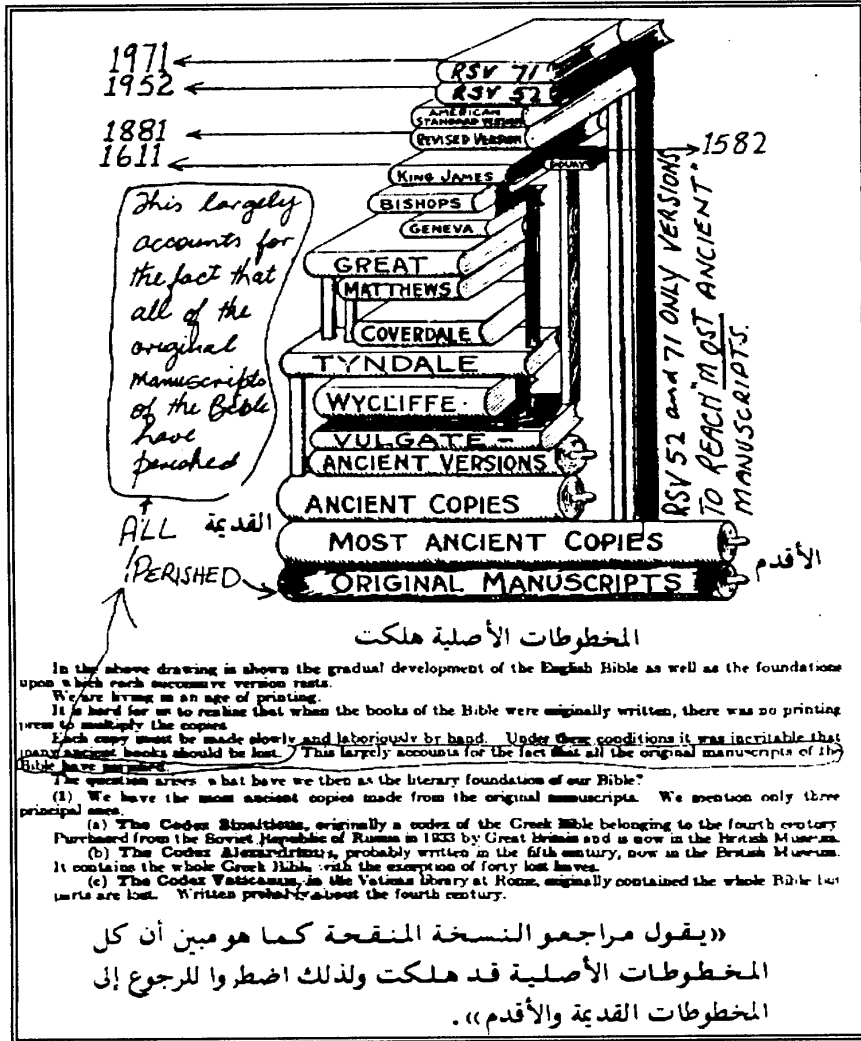 1971
RSV 71
1952
RSV 52
AMERICAN
STANDARD VERSION
1881
REVISED VERSION
1611
1582
DOUAY
KING JAMES
BISHOPS
GENEVA
This largely
accounts for
the fact that
all of the
original
Manuscripts
of the Bible
have
perished
GREAT
MATTHEWS
COVERDALE
TYNDALE
WYCLIFFE.
VULGATE -
ANCIENT VERSIONS
ANCIENT COPIES
القديمة
ALL
PERISHED
MOST ANCIENT COPIES
الأقدم
ORIGINAL MANUSCRIPTS
RSV 52 and 71 ONLY VERSIONS
TO REACH "MOST ANCIENT"
MANUSCRIPTS.
المخطوطات الأصلية هلكت
In the above drawing is shown the gradual development of the English Bible as well as the foundations
upon which each successive version rests.
We are living in an age of printing.
It is hard for us to realize that when the books of the Bible were originally written, there was no printing
press to multiply the copies
Each copy must be made slowly and laboriously by hand. Under these conditions it was inevitable that
many ancient books should be lost. This largely accounts for the fact that all the original manuscripts of the
Bible have perished.
The question arises, what have we then as the literary foundation of our Bible?
(1) We have the most ancient copies made from the original manuscripts. We mention only three
principal ones.
(a) The Codex Sinaiticus, originally a codex of the Greek Bible belonging to the fourth century
Purchased from the Soviet Republic of Russia in 1933 by Great Britain and is now in the British Museum.
(b) The Codex Alexandrinus, probably written in the fifth century, now in the British Museum.
It contains the whole Greek Bible with the exception of forty lost leaves.
(c) The Codex Vaticanus, in the Vatican library at Rome, originally contained the whole Bible but
parts are lost. Written probably about the fourth century.
((يقول مراجعو النسخة المنقحة كما هو مبين أن كل
المخطوطات الأصلية قد هلكت ولذلك اضطروا للرجوع إلى
المخطوطات القديمة والأقدم)).